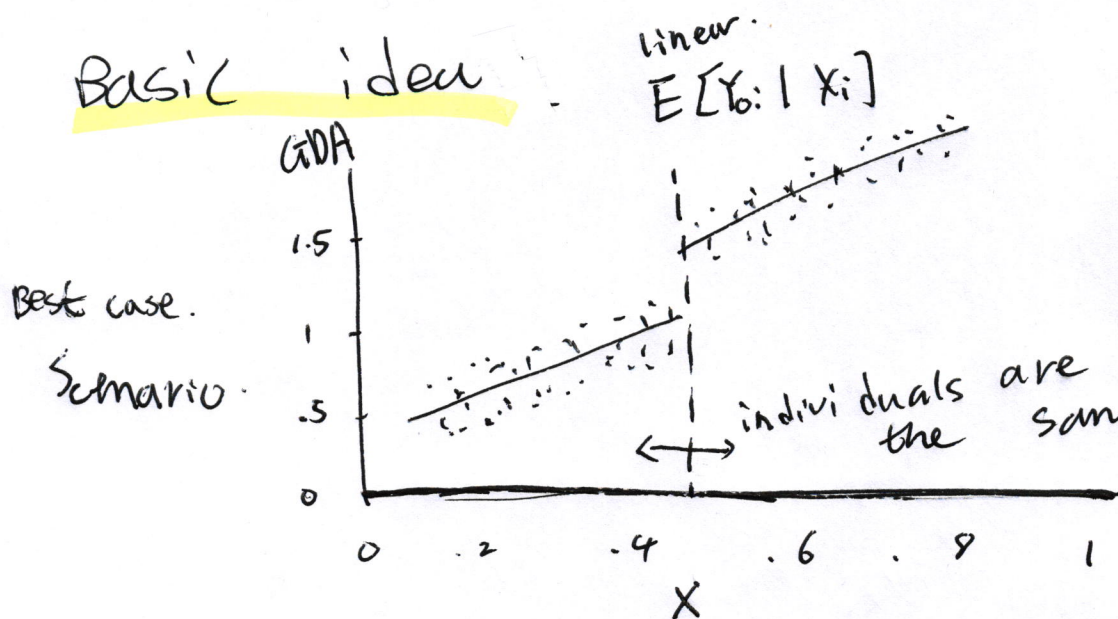 Basic idea.
linear.
E[Y₀ᵢ | Xᵢ]
GDA
1.5
1
.5
0
Best case.
Scenario.
individuals are
the sam
0 .2 .4 .6 .8 1
X